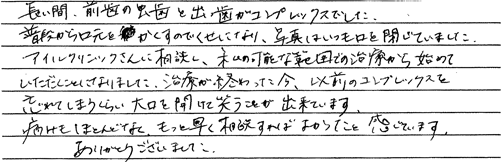 長い間、前歯の虫歯と出っ歯がコンプレックスでした。
普段から口元をかくすのでくせになり、写真はいつも口を閉じていました。
アイルクリニックさんに相談し、私の可能な範囲での治療から始めて
いただくことになりました。治療が終わった今、以前のコンプレックスを
忘れてしまうくらい大口を開けて笑うことが出来ています。
痛みもほとんどなく、もっと早く相談すればよかったと感じています。
ありがとうございました。